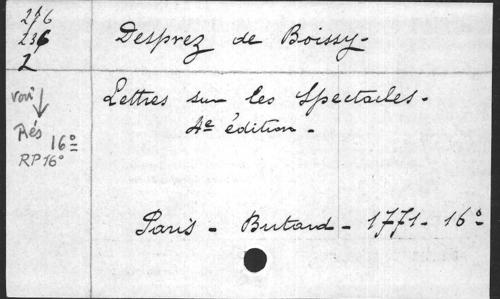 236
2
voir
Rés 16°
RP 16°
Desprez de Boissy.
Lettres sur les Spectacles.
4e édition.
Paris - Butard - 1771 - 16°